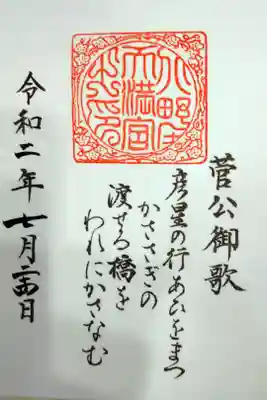 天満宮
菅公御歌
彦星の行あひをまつ
かささぎの
渡せる橋を
われにかさなむ
令和二年七月日